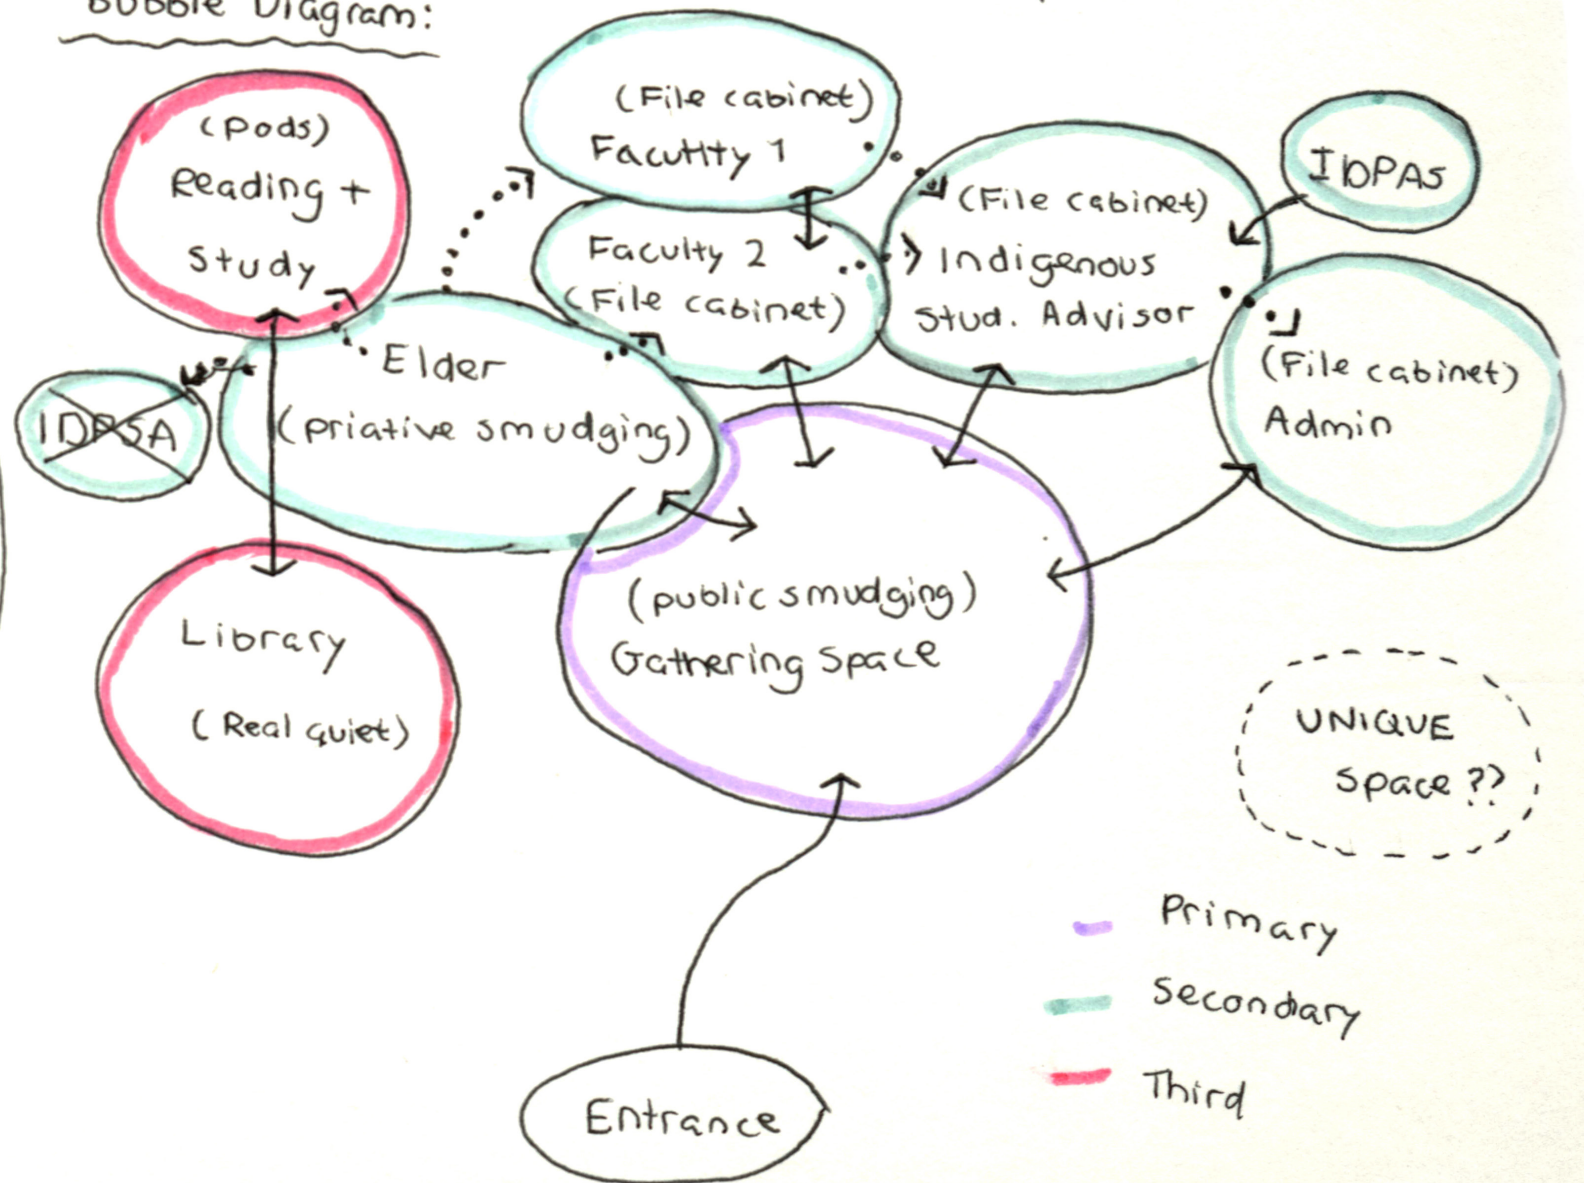 Bubble Diagram:
(Pods)
Reading +
Study
(File cabinet)
Facultty 1
Faculty 2
(File cabinet)
(File cabinet)
Indigenous
Stud. Advisor
IDPAS
(File cabinet)
Admin
Elder
(priative smudging)
IDPSA
Library
(Real quiet)
(public smudging)
Gathering Space
UNIQUE
Space ??
Primary
Secondary
Third
Entrance